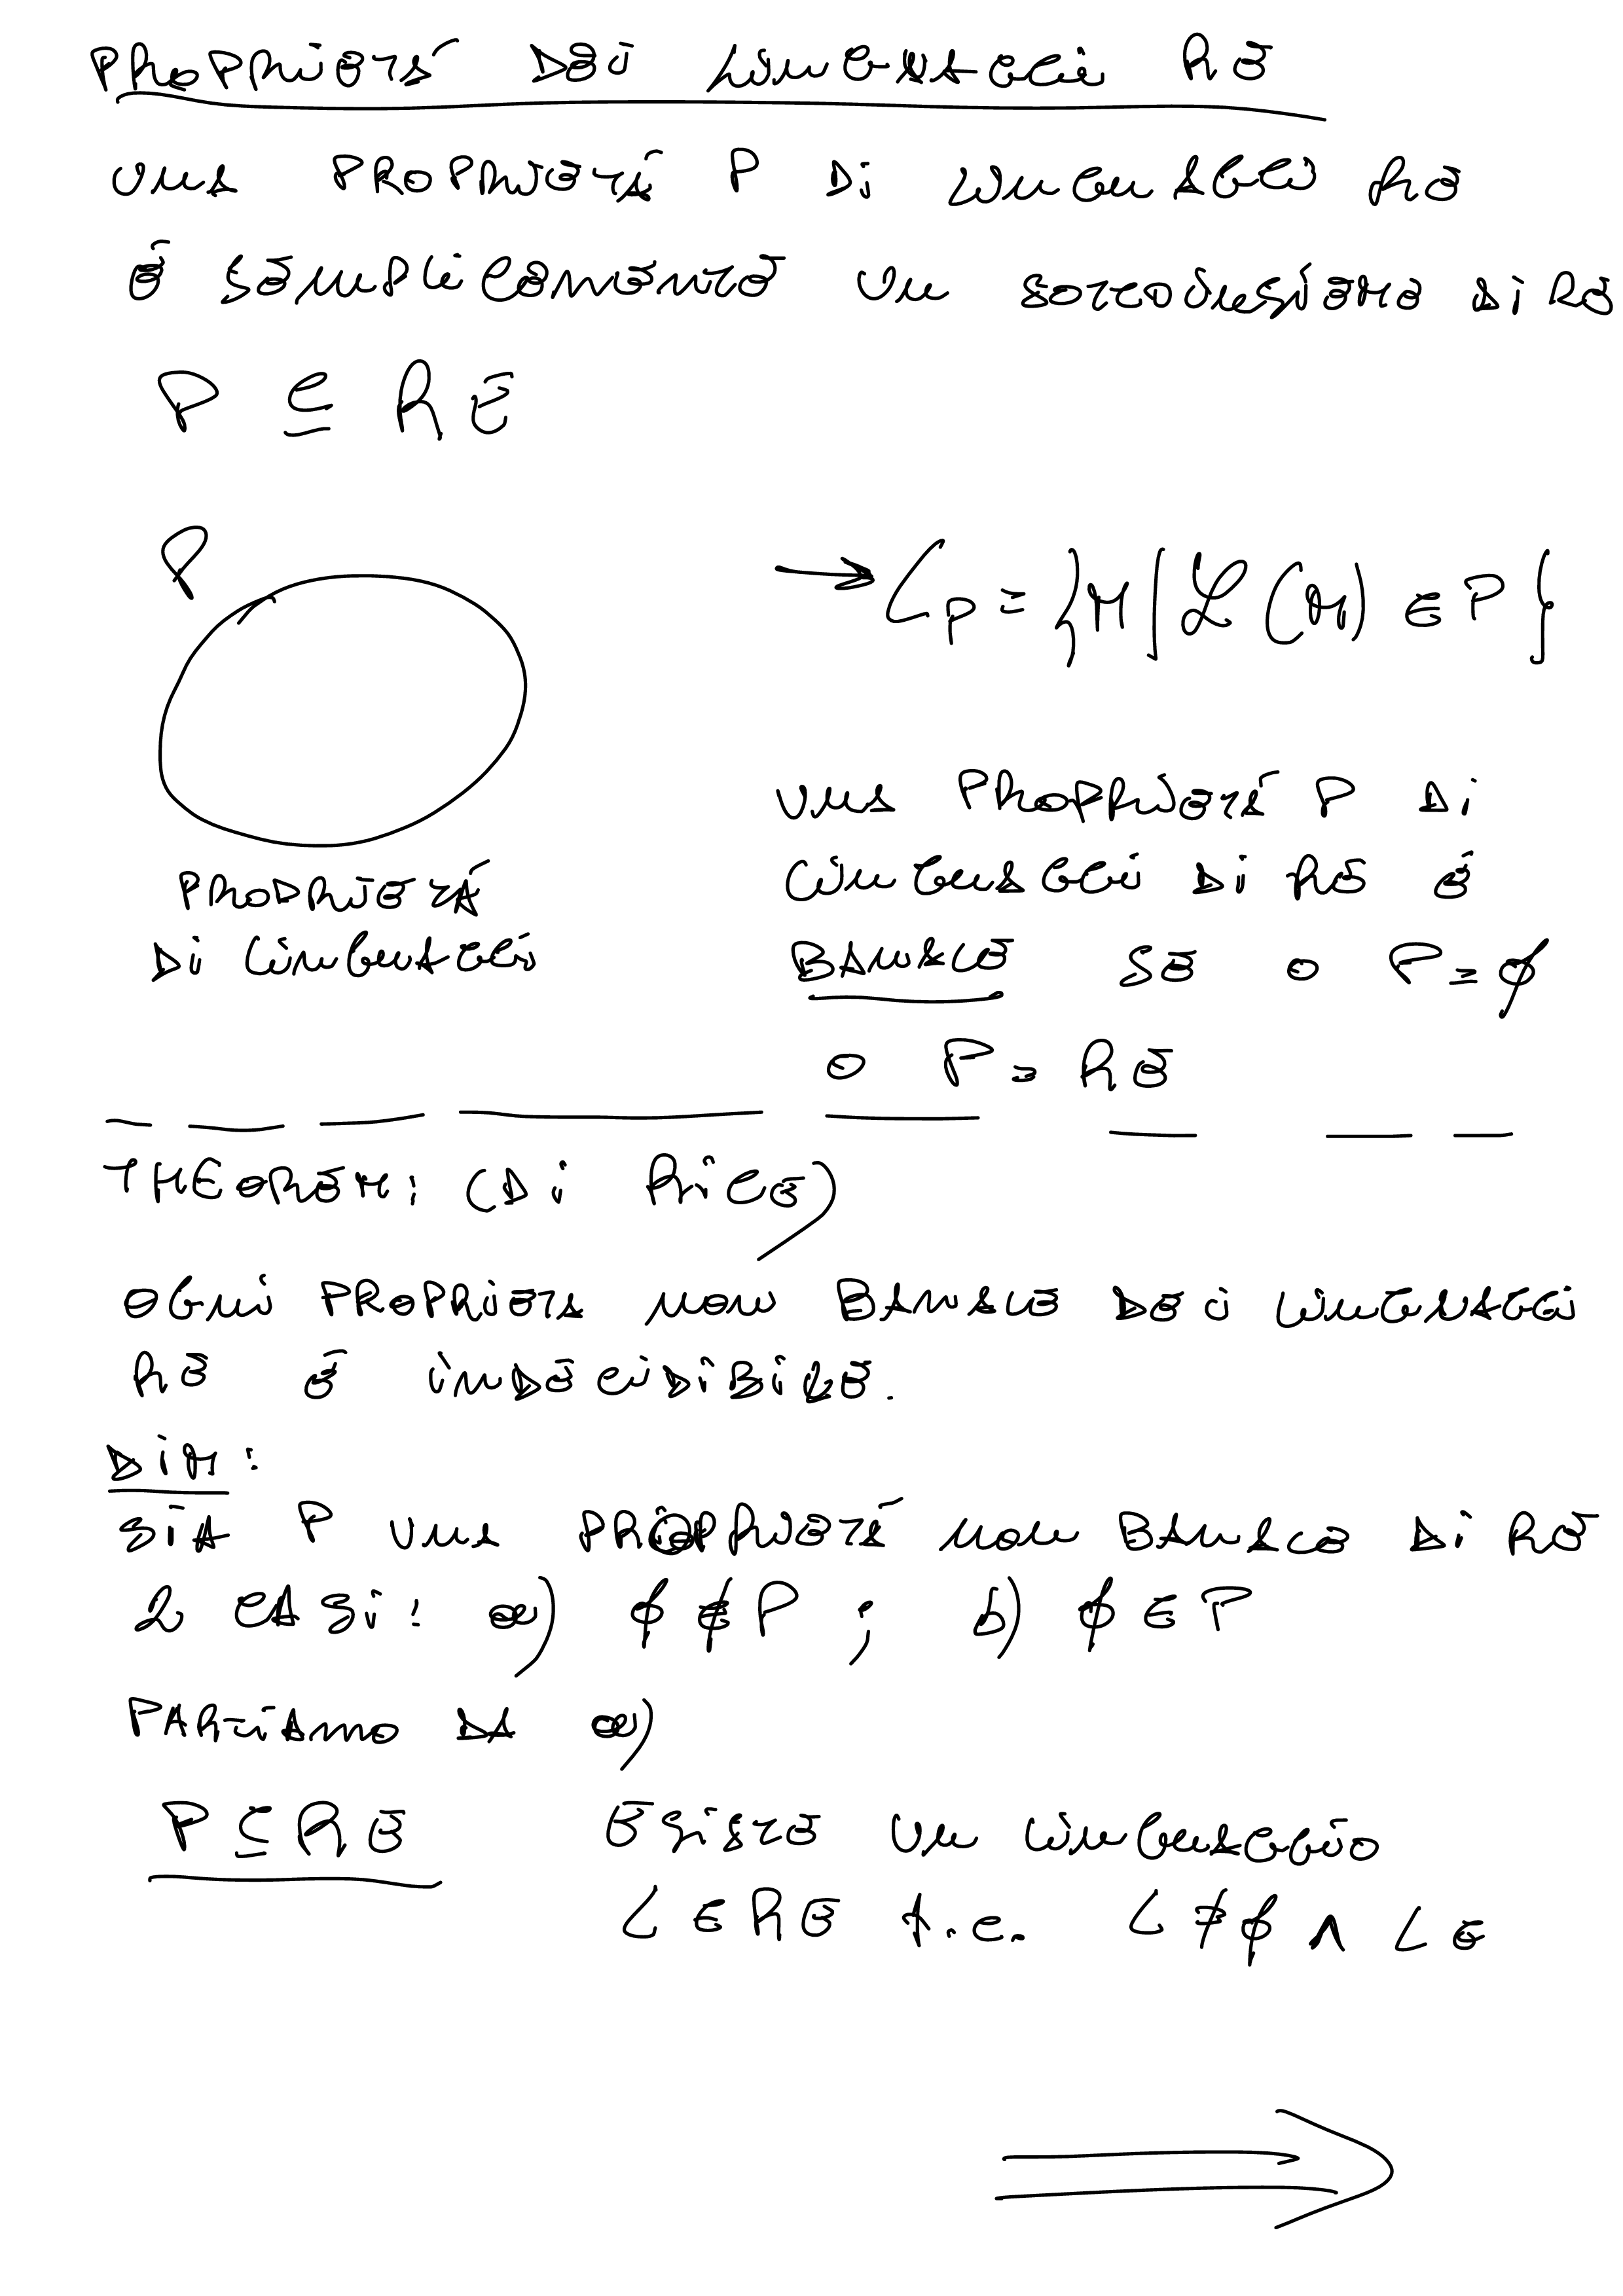 PROPRIETÁ DEI LINGUAGGI RE
UNA PROPRIETÁ P DI LINGUAGGI RE
É SEMPLICEMENTE UN SOTTOINSIEME DI RE
P ⊆ RE
P
→ L_P = {M | ℒ(M) ∈ P}
PROPRIETÁ
DI LINGUAGGI
UNA PROPRIETÁ P DI
LINGUAGGI DI RE É
BANALE SE O P = ∅
O P = RE
THEOREM: (DI RICE)
OGNI PROPRIETA NON BANALE DEI LINGUAGGI
RE É INDECIDIBILE.
DIM:
SIA P UNA PROPRIETÁ NON BANALE DI RE
2 CASI: a) ∅ ∉ P ; b) ∅ ∈ P
PARTIAMO DA a)
P ⊆ RE ESISTE UN LINGUAGGIO
L ∈ RE t.c. L ≠ ∅ ∧ L ∈